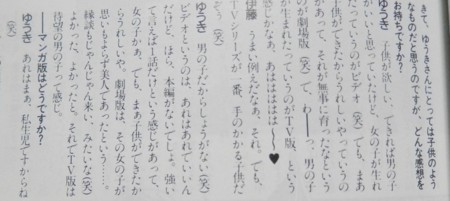 きて、ゆうきさんにとっては子供のよう
なものだと思うのですが、どんな感想を
お持ちですか？
ゆうき　子供が欲しい、できれば男の子
がいいと思っていたけど、女の子が生れ
たっていうのがビデオ（笑）でも、まあ
子供ができたからうれしいやっていうの
があって、それが無事に育ったなという
の劇場版（笑）で、わーーっ、男の子
が生まれたっていうのがTV版、という
感じかなあ。あはははははは〜♥
伊藤　うまい例えだなあ、それ。でも、
TVシリーズが一番、手のかかる子供だ
ぞう（笑）
ゆうき　男の子だからしょうがない（笑）
ビデオというのは、あれはあれでいいん
だけど、ほら、本編がないでしょ。強い
て言えば一話だけという感じがあって、
女の子かあ、でも、まあ子供ができたか
らうれしいや、劇場版は、その女の子が
思いもよらず美人であったという……。
縁談もじゃんじゃん来い、みたいな（笑）
よかった、よかったと。それでTV版は
待望の男の子って感じ。
――マンガ版はどうですか？
ゆうき　あれはまあ、私生児ですからね
（笑）